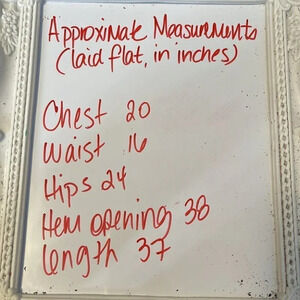 Approximate Measurements
(laid flat, in inches)
Chest 20
Waist 16
Hips 24
Hem opening 38
length 37